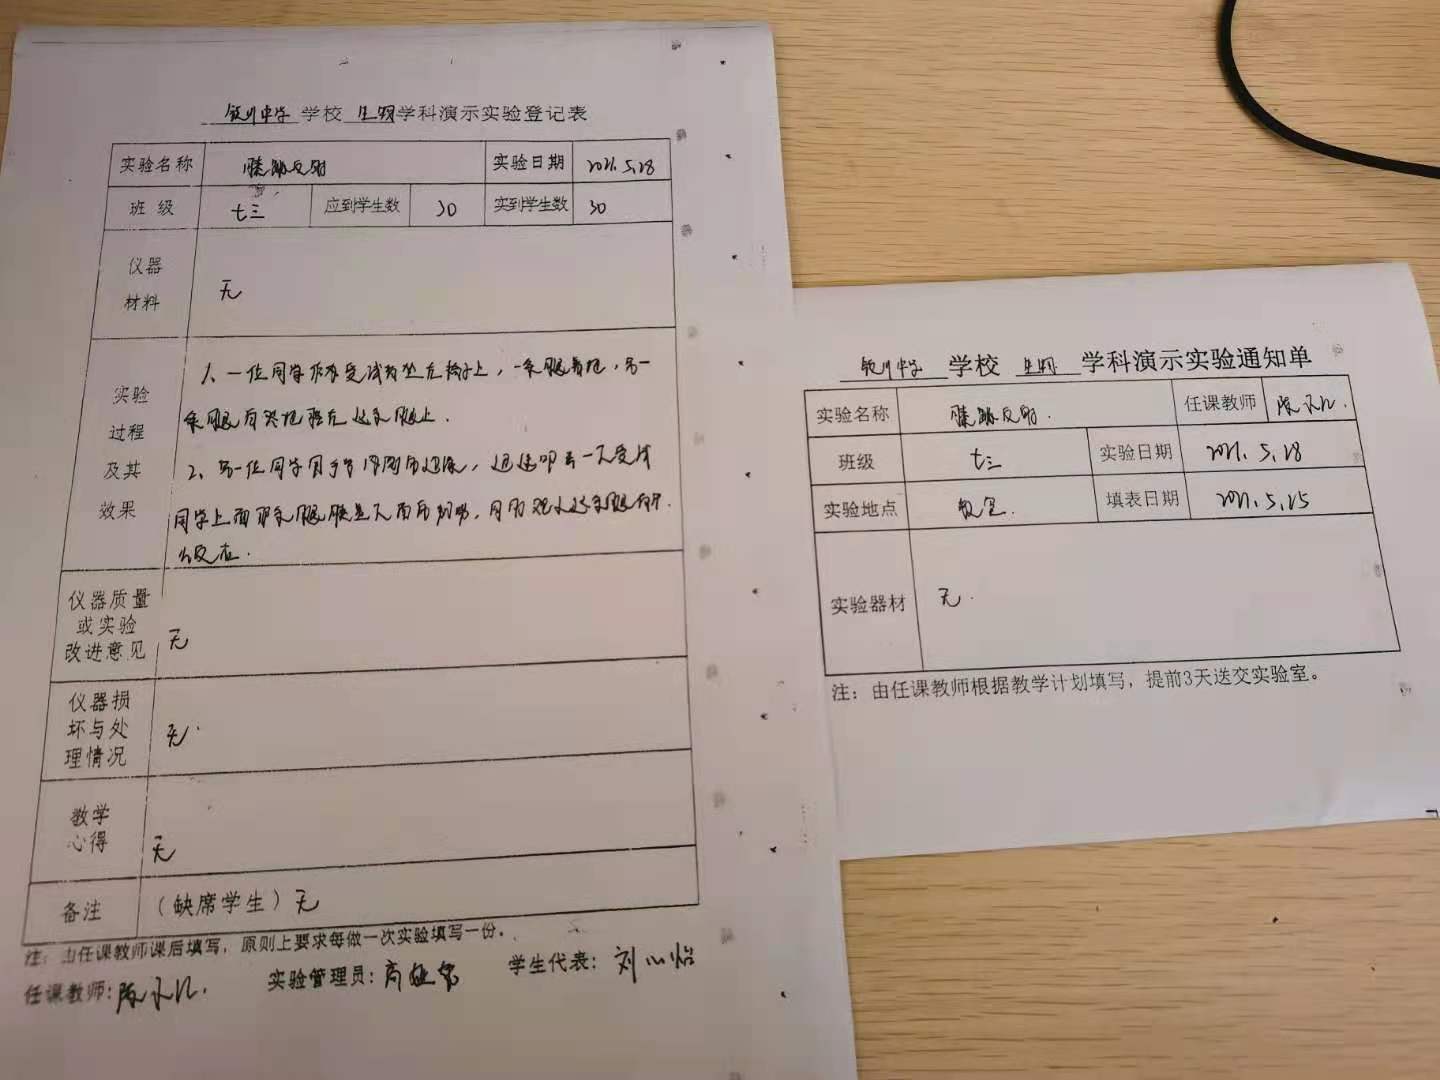 银川中学 学校 生物 学科演示实验登记表
实验名称 膝跳反射 实验日期 2021.5.28
班 级 七三 应到学生数 30 实到学生数 30
仪器
材料
无
实验
过程
及其
效果
1、一位同学作为受试者坐在椅子上，一条腿着地，另一
条腿自然地搭在这条腿上.
2、另一位同学用手掌内侧的边缘，迅速叩击一下受试
同学上面那条腿膝盖下面的韧带，同时观察这条腿有什
么反应.
仪器质量
或实验
改进意见
无
仪器损
坏与处
理情况
无.
教学
心得
无
备注 （缺席学生）无
注：由任课教师课后填写，原则上要求每做一次实验填写一份。
任课教师: 实验管理员: 学生代表: 刘心怡
银川中学 学校 生物 学科演示实验通知单
实验名称 膝跳反射. 任课教师
班级 七三 实验日期 2021.5.28
实验地点 教室. 填表日期 2021.5.25
实验器材 无.
注：由任课教师根据教学计划填写，提前3天送交实验室。